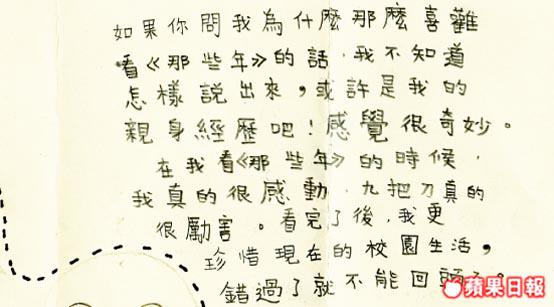 如果你問我為什麼那麼喜歡
看《那些年》的話，我不知道
怎樣說出來，或許是我的
親身經歷吧！感覺很奇妙。
在我看《那些年》的時候，
我真的很感動，九把刀真的
很勵害。看完了後，我更
珍惜現在的校園生活，
錯過了就不能回頭了。
蘋果日報